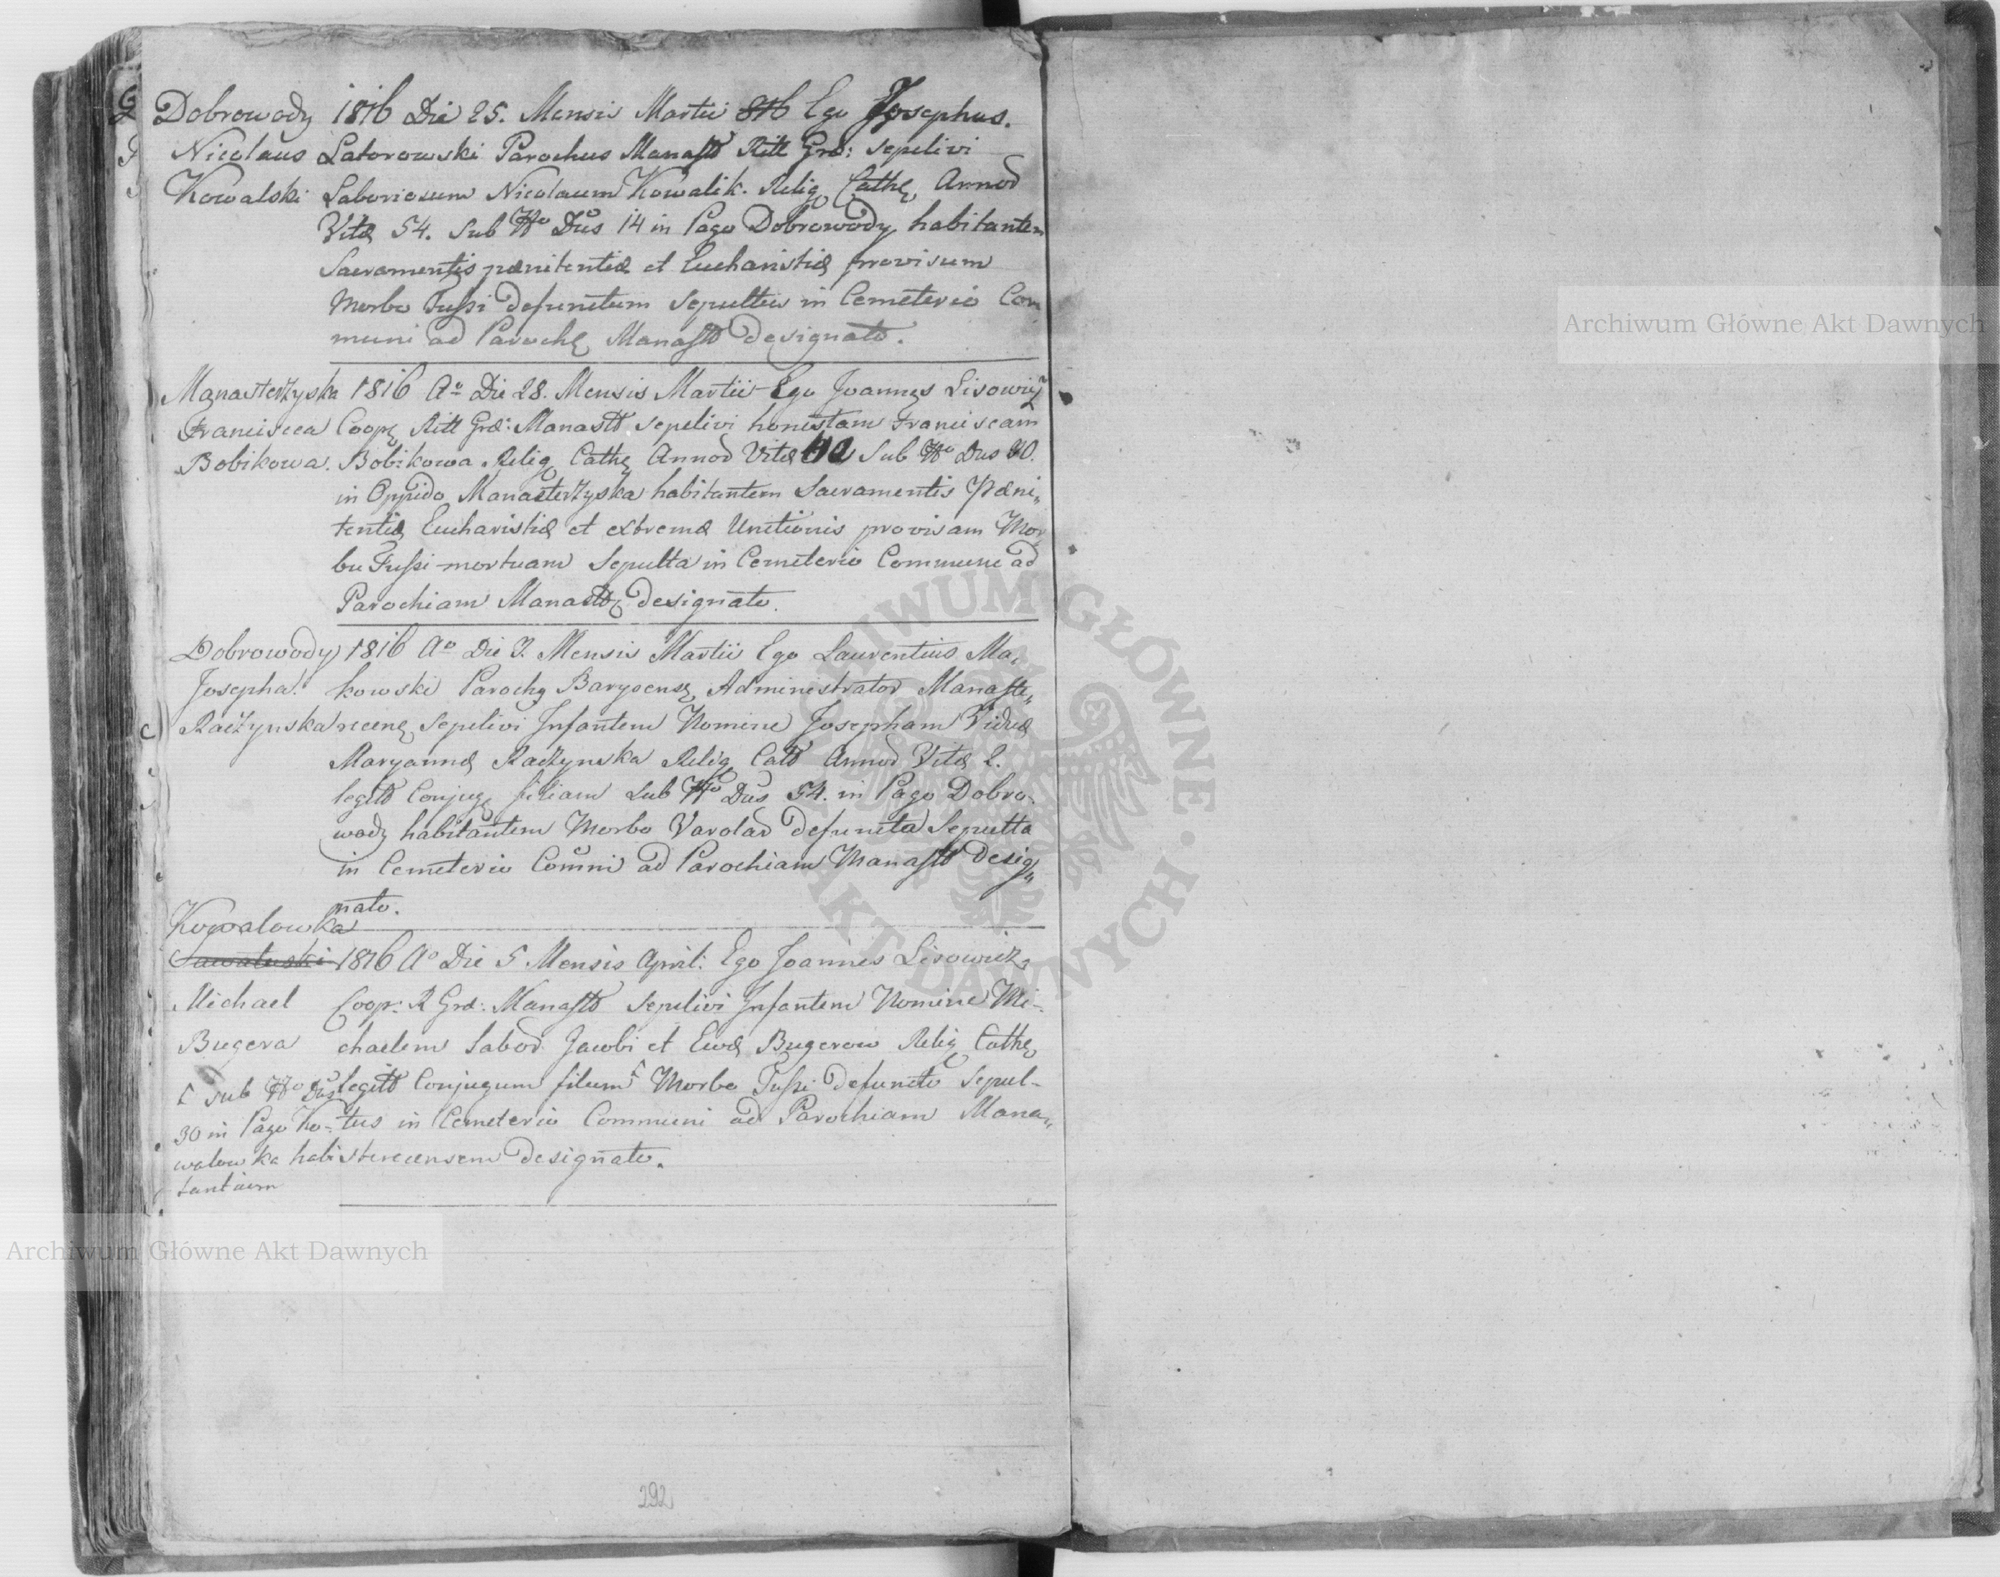 Dobrowody 1816 Die 25. Mensis Martii 816 Ego Josephus.
Nicolaus Latorowski Parochus Manastt Ritt Græ: sepelivi
Kowalski Laboriosum Nicolaum Kowalik. Relig Cathę Annoꝝ
Vitæ 54. sub Nro Dũs 14 in Pago Dobrowody habitantem
Sacramentis pænitentiæ et Eucharistiæ provisum
Morbo Tussi defunctum Sepultus in Cemeterio Com
muni ad Parochę Manastt designato.
Manasterzyska 1816 Ao Die 28. Mensis Martii Ego Joannes Lisowicz
Francisca Coopę Ritt Græ: Manastt sepelivi honestam Franciscam
Bobikowa. Bobikowa. Relig Cathę Annoꝝ Vitæ 40 Sub Nro Dus
in Oppido Manasterzyska habitantem Sacramentis Pæni„
tentiæ Eucharistiæ et extremæ Unctionis provisam Mor
bu Tussi mortuam Sepulta in Cemeterio Commune ad
Parochiam Manastt designato.
Dobrowody 1816 Ao Die 3. Mensis Martii Ego Laurentius Ma„
Josepha. kowski Parochę Barysensę Administrator Manaste„
Raczynska recenę sepelivi Infantem Nomine Josepham Viduæ
Maryannæ Raczynska Relig Catt Annoꝝ Vitæ 2.
legitt Conjugę filiam sub Nro Dũs 54. in Pago Dobro„
wody habitantem Morbo Varolaꝝ defuncta Sepulta
in Cemeterio Com̃ni ad Parochiam Manastt desig„
nato.
Kowalowka
1816 Ao Die 5 Mensis April: Ego Joannes Lisowicz
Michael Coop: R Græ: Manastt sepelivi Infantem Nomine Mi-
Bugera chaelem Laboꝝ Jacobi et Ewæ Bugerow Relig Cathę
legitt Conjugum filium Morbo Tussi defuncto Sepul-
tus in Cemeterio Communi ad Parochiam Mana„
sterecensem designato.
sub Nro Dũs
30 in Pago Ko-
walowka habi
tantium
292
Archiwum Główne Akt Dawnych
Archiwum Główne Akt Dawnych
ARCHIWUM GŁÓWNE AKT DAWNYCH